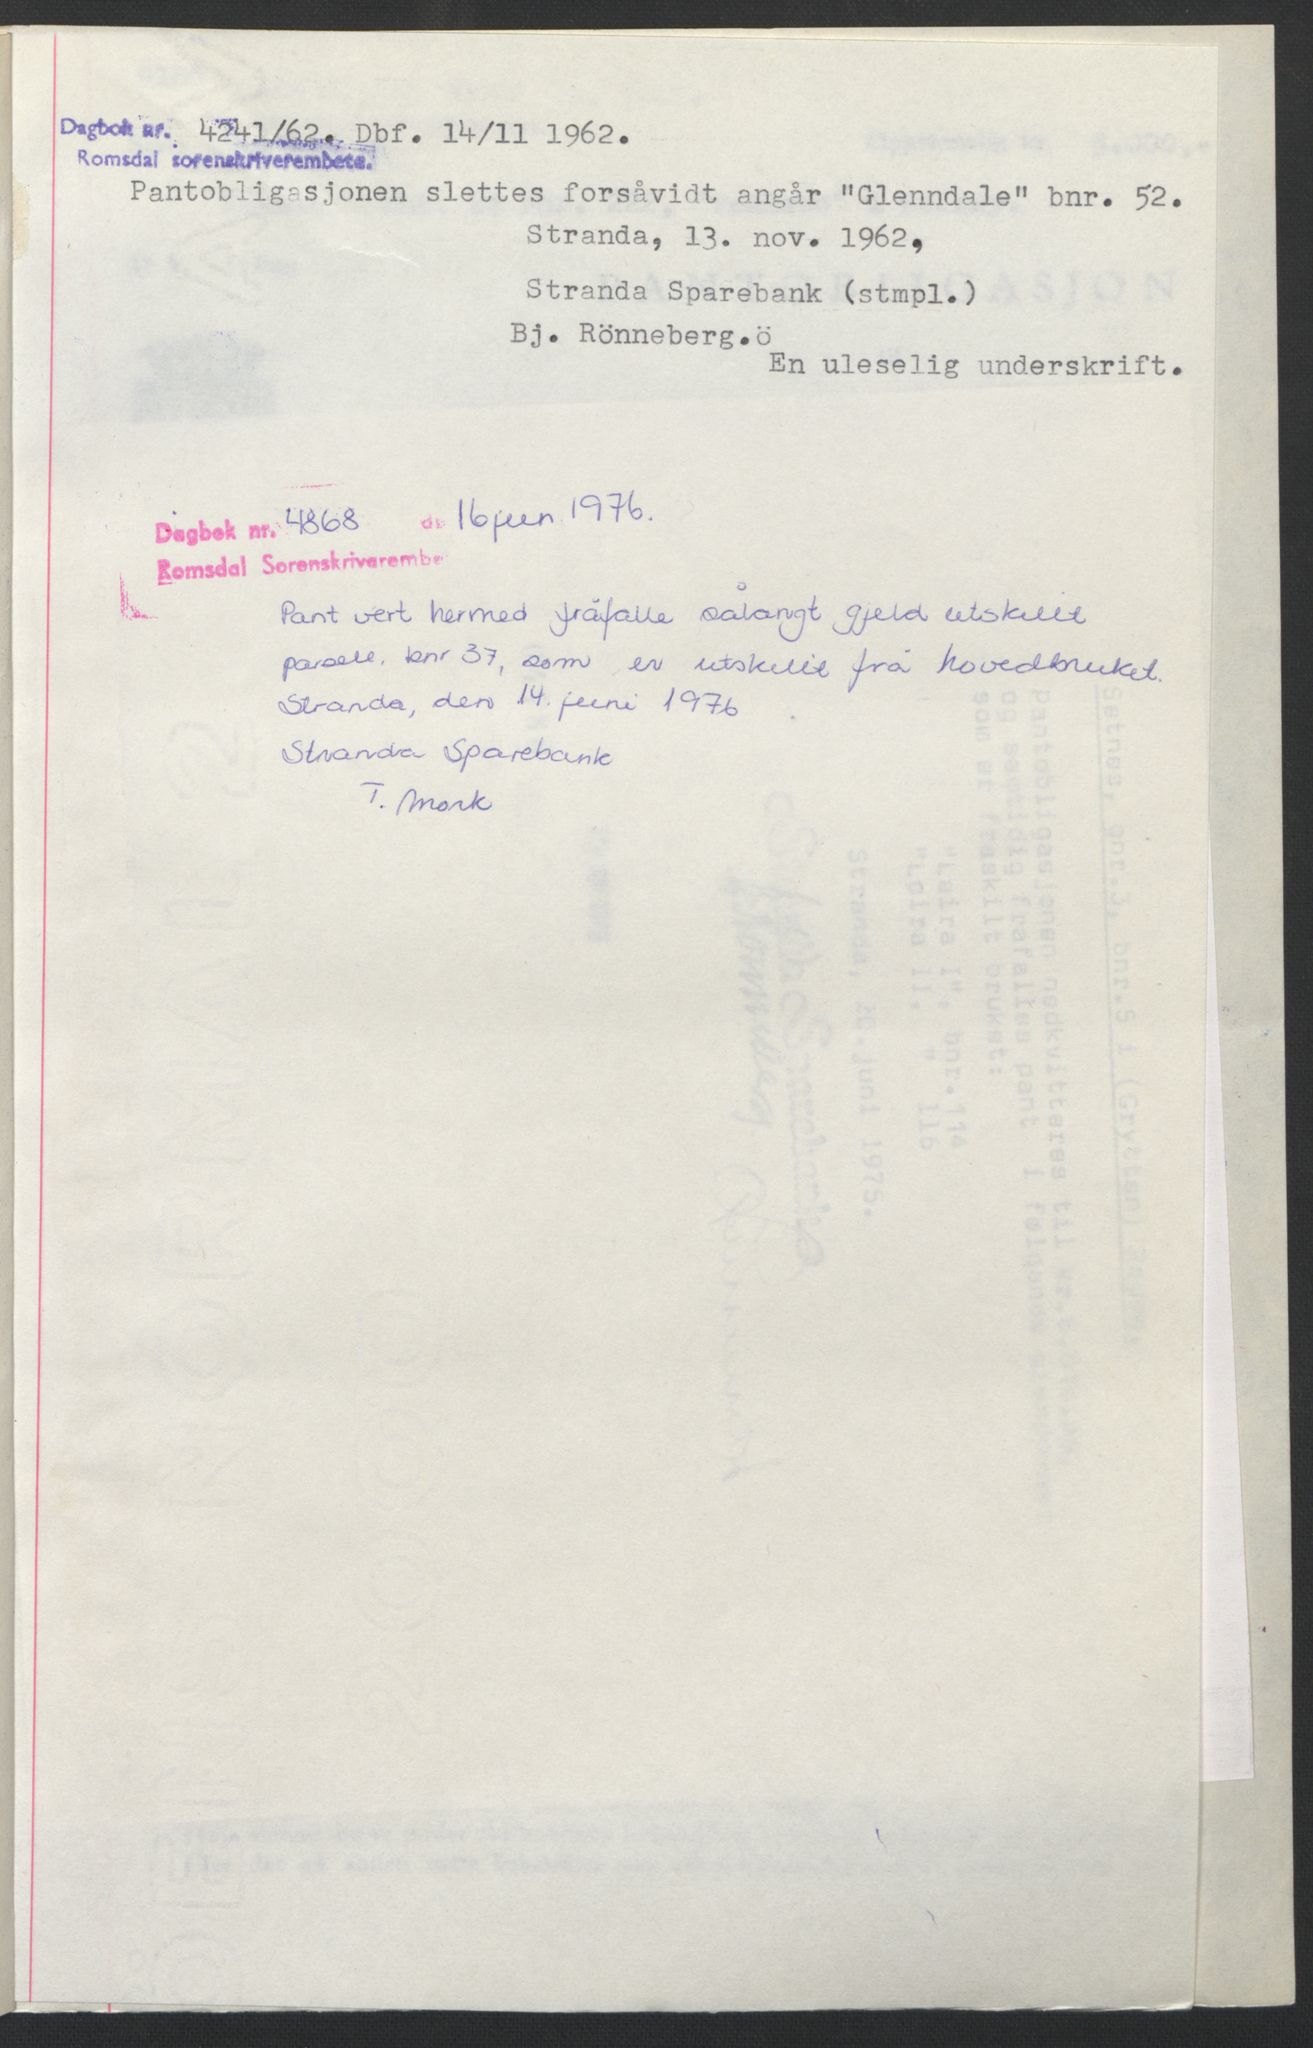 Dagbok nr. 4241/62. Dbf. 14/11 1962.
Romsdal sorenskriverembete.
Pantobligasjonen slettes forsåvidt angår "Glenndale" bnr. 52.
Stranda, 13. nov. 1962,
Stranda Sparebank (stmpl.)
Bj. Rönneberg.ö
En uleselig underskrift.
Dagbok nr. 4868 16 jun 1976.
Romsdal Sorenskrivarembe
Pant vert hermed fråfalle sålangt gjeld utskilt
parsell. bnr 37, som er utskilt frå hovedbruket.
Stranda, den 14. juni 1976
Stranda Sparebank
T. Mork